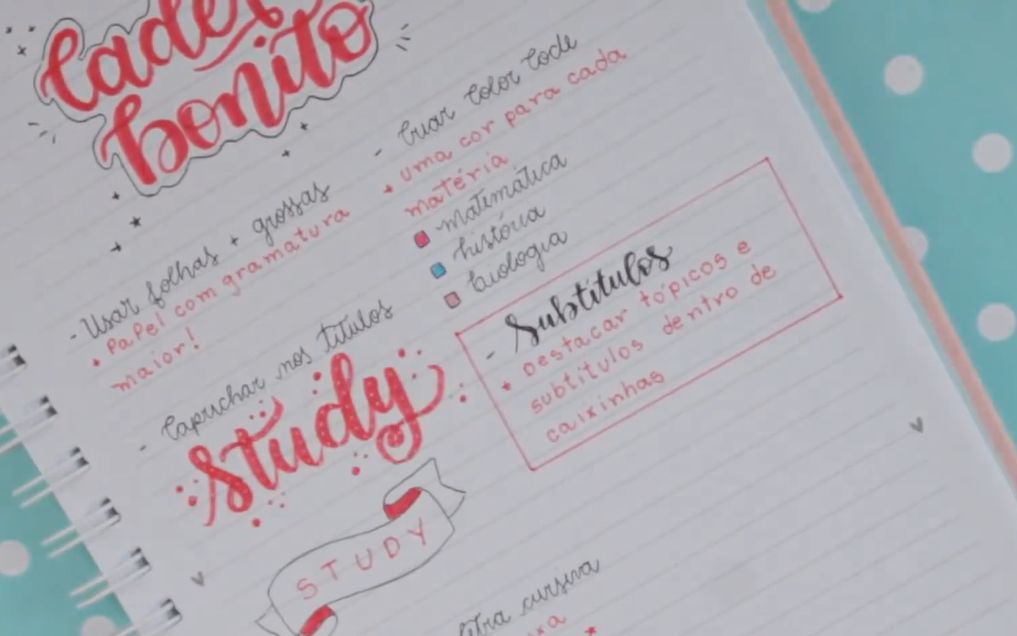 bonito
- Usar folhas + grossas
+ Papel com gramatura
maior!
- Capuchar nos títulos
study
STUDY
- Criar Color Code
+ uma cor para cada
matéria
matemática
história
biologia
- Subtítulos
+ Destacar tópicos e
subtítulos dentro de
caixinhas
cursiva